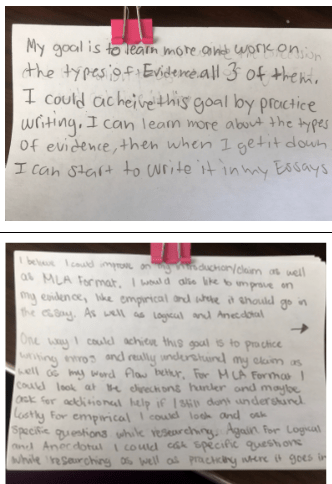 My goal is to learn more and work on
the types of Evidence all 3 of them.
I could acheive this goal by practice
writing. I can learn more about the types
of evidence, then when I get it down
I can start to write it in my Essays
I believe I could improve on my introduction/claim as well
as MLA Format. I would also like to improve on
my evidence, like empirical and where it should go in
the essay. As well as Logical and Anecdotal
One way I could achieve this goal is to practice
writing intros and really understand my claim as
well as my word flow better. For MLA Format I
could look at the directions further and maybe
ask for additional help if I still dont understand
Lastly for empirical I could look and ask
specific questions while researching. Again for Logical
and Anecdotal I could ask specific questions
while researching as well as practicing where it goes in